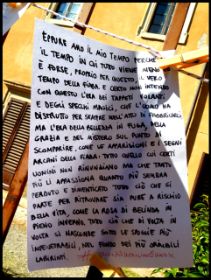 EPPURE AMO IL MIO TEMPO PERCHÉ
IL TEMPO IN CUI TUTTO VIENE MENO ED
È FORSE, PROPRIO PER QUESTO, IL VERO
TEMPO DELLA FIABA. E CERTO NON INTENDO
CON QUESTO L'ERA DEI TAPPETI VOLANTI
E DEGLI SPECCHI MAGICI, CHE L'UOMO HA
DISTRUTTO PER SEMPRE NELL'ATTO DI FABBRICARLI,
MA L'ERA DELLA BELLEZZA IN FUGA, DELLA
GRAZIA E DEL MISTERO SUL PUNTO DI
SCOMPARIRE, COME LE APPARIZIONI E I SEGNI
ARCANI DELLA FIABA: TUTTO QUELLO CUI CERTI
UOMINI NON RINUNZIANO MAI CHE TANTO
PIÙ LI APPASSIONA QUANTO PIÙ SEMBRA
PERDUTO E DIMENTICATO. TUTTO CIÒ CHE SI
PARTE PER RITROVARE SIA PURE A RISCHIO
DELLA VITA, COME LA ROSA DI BELINDA IN
PIENO INVERNO. TUTTO CIÒ CHE DI VOLTA IN
VOLTA SI NASCONDE SOTTO LE SPOGLIE PIÙ
IMPENETRABILI, NEL FONDO DEI PIÙ ORRIBILI
LABIRINTI.